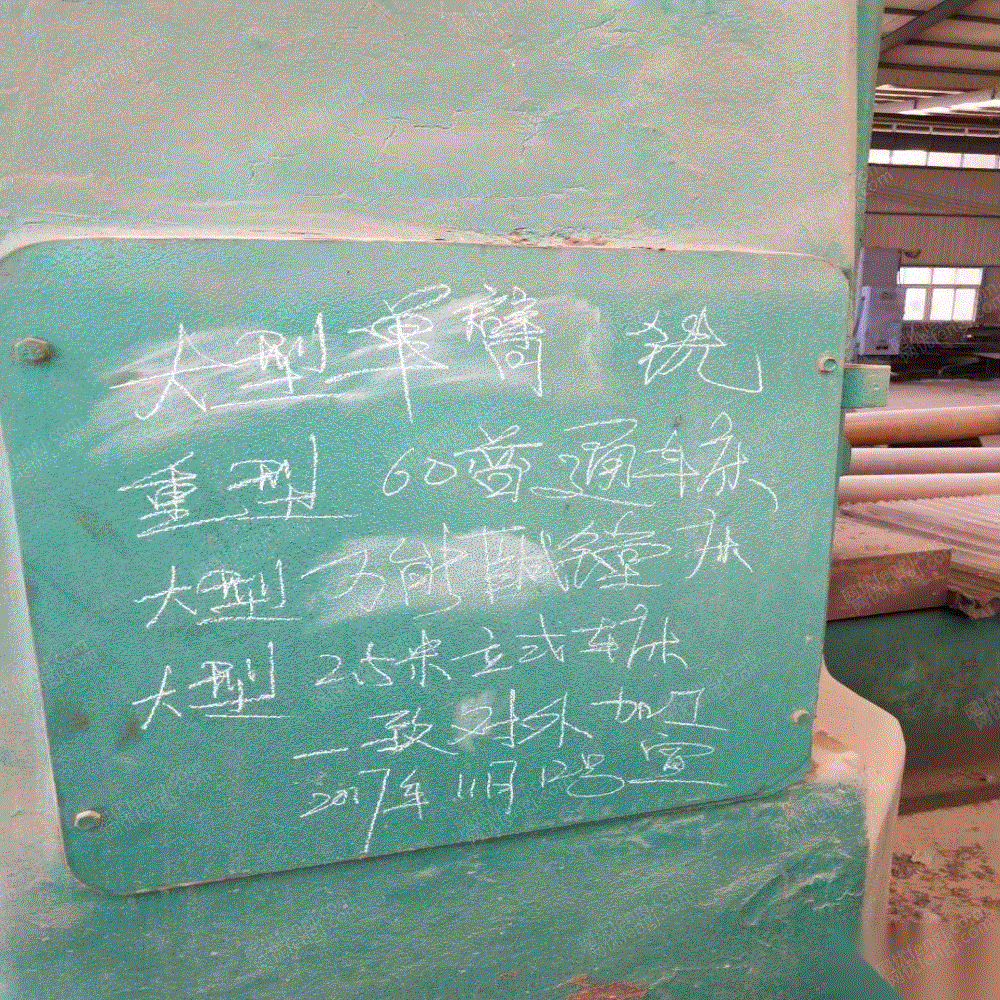 大型单臂 铣
重型 60普通车床
大型万能卧式镗床
大型 2.5米立式车床
一致对外加工
2017年11月12号宣